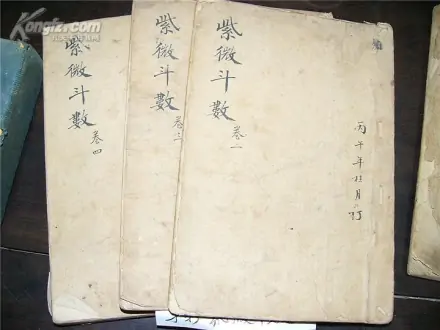 Kongfz.com
紫微斗數
卷四
紫微斗數
卷三
紫微斗數
卷一
丙午年